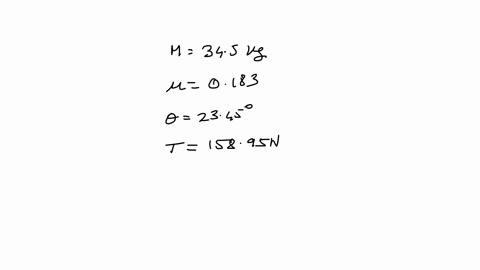 M = 34.5 kg
μ = 0.183
θ = 23.45°
T = 158.95N